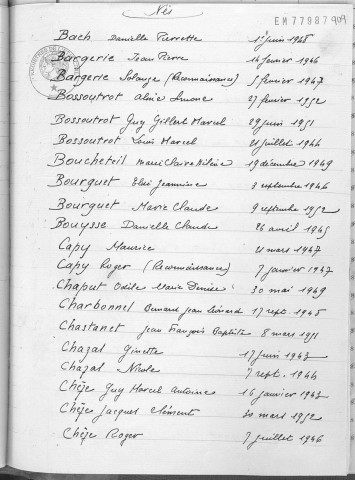 Nés
EM77987 909
Bach Danielle Pierrette 1er juin 1948
Bargerie Jean Pierre 14 février 1946
Bargerie Solange (Reconnaissance) 5 février 1947
Bossoutrot Aline Simone 27 février 1952
Bossoutrot Guy Gilbert Marcel 29 juin 1951
Bossoutrot Louis Marcel 21 juillet 1944
Boucheteil Marie Claire Hélène 19 décembre 1949
Bourguet Elie Jeannine 3 septembre 1946
Bourguet Marie Claude 9 septembre 1952
Bouysse Danielle Claude 26 avril 1945
Capy Maurice 21 mars 1947
Capy Roger (Reconnaissance) 7 janvier 1947
Chaput Odile Marie Denise 30 mai 1949
Charbonnel Bernard Jean Léonard 17 sept. 1948
Chastanet Jean François Baptiste 8 mars 1951
Chazal Ginette 17 juin 1943
Chazal Nicole 7 sept. 1944
Chèze Guy Marcel Antoine 16 janvier 1943
Chèze Jacques Clément 30 mars 1952
Chèze Roger 7 juillet 1946